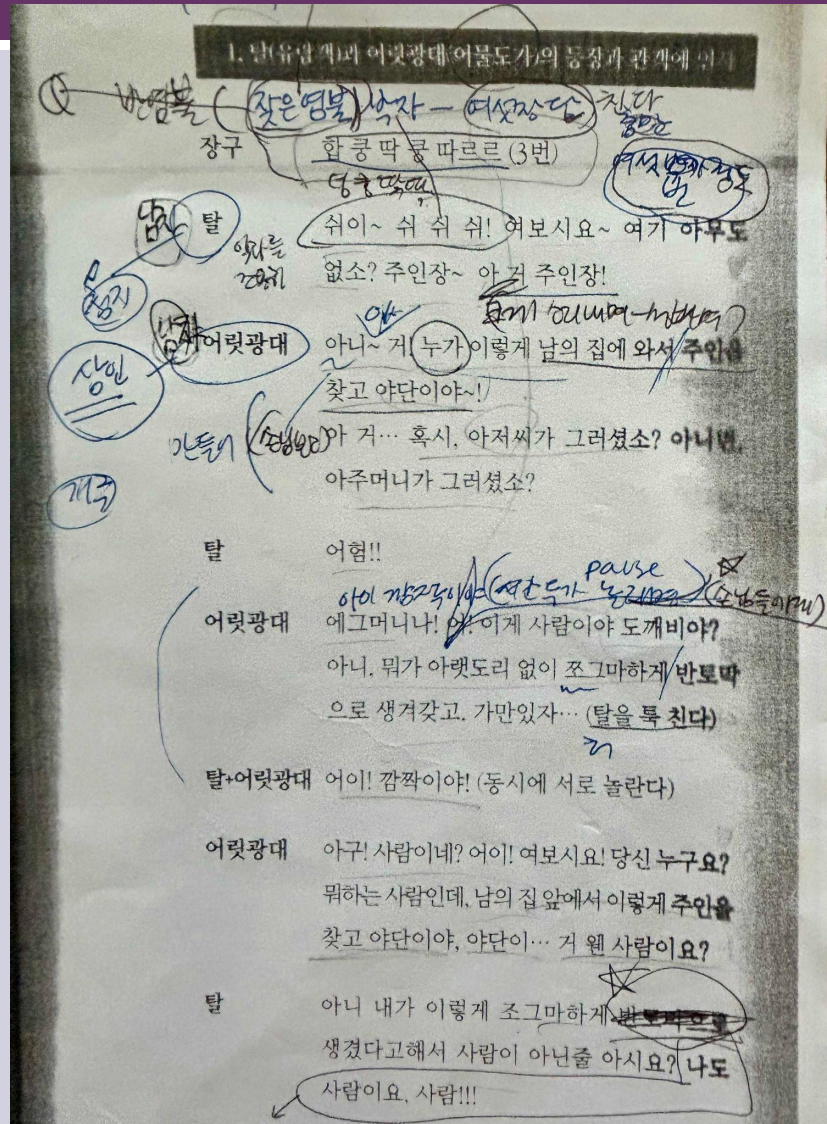 1. 탈(유람객)과 어릿광대(어물도가)의 등장과 관객에 인사
반염불 (잦은염불) 박자 - 여섯장단 친다
장구 합 쿵 딱 쿵 따르르 (3번)
덩쿵딱따
여섯 번 정도
남자
탈 쉬이~ 쉬 쉬 쉬! 여보시요~ 여기 아무도
없소? 주인장~ 아 거 주인장!
첨지
상인
어릿광대 아니~ 거! 누가 이렇게 남의 집에 와서 주인을
찾고 야단이야~!
아 거… 혹시, 아저씨가 그러셨소? 아니면,
아주머니가 그러셨소?
탈 어험!!
pause
어릿광대 에그머니나! 어! 이게 사람이야 도깨비야?
아니, 뭐가 아랫도리 없이 쪼그마하게 반토막
으로 생겨갖고, 가만있자… (탈을 툭 친다)
탈+어릿광대 어이! 깜짝이야! (동시에 서로 놀란다)
어릿광대 아구! 사람이네? 어이! 여보시요! 당신 누구요?
뭐하는 사람인데, 남의 집 앞에서 이렇게 주인을
찾고 야단이야, 야단이… 거 웬 사람이요?
탈 아니 내가 이렇게 조그마하게 반토막으로
생겼다고해서 사람이 아닌줄 아시요? 나도
사람이요, 사람!!!